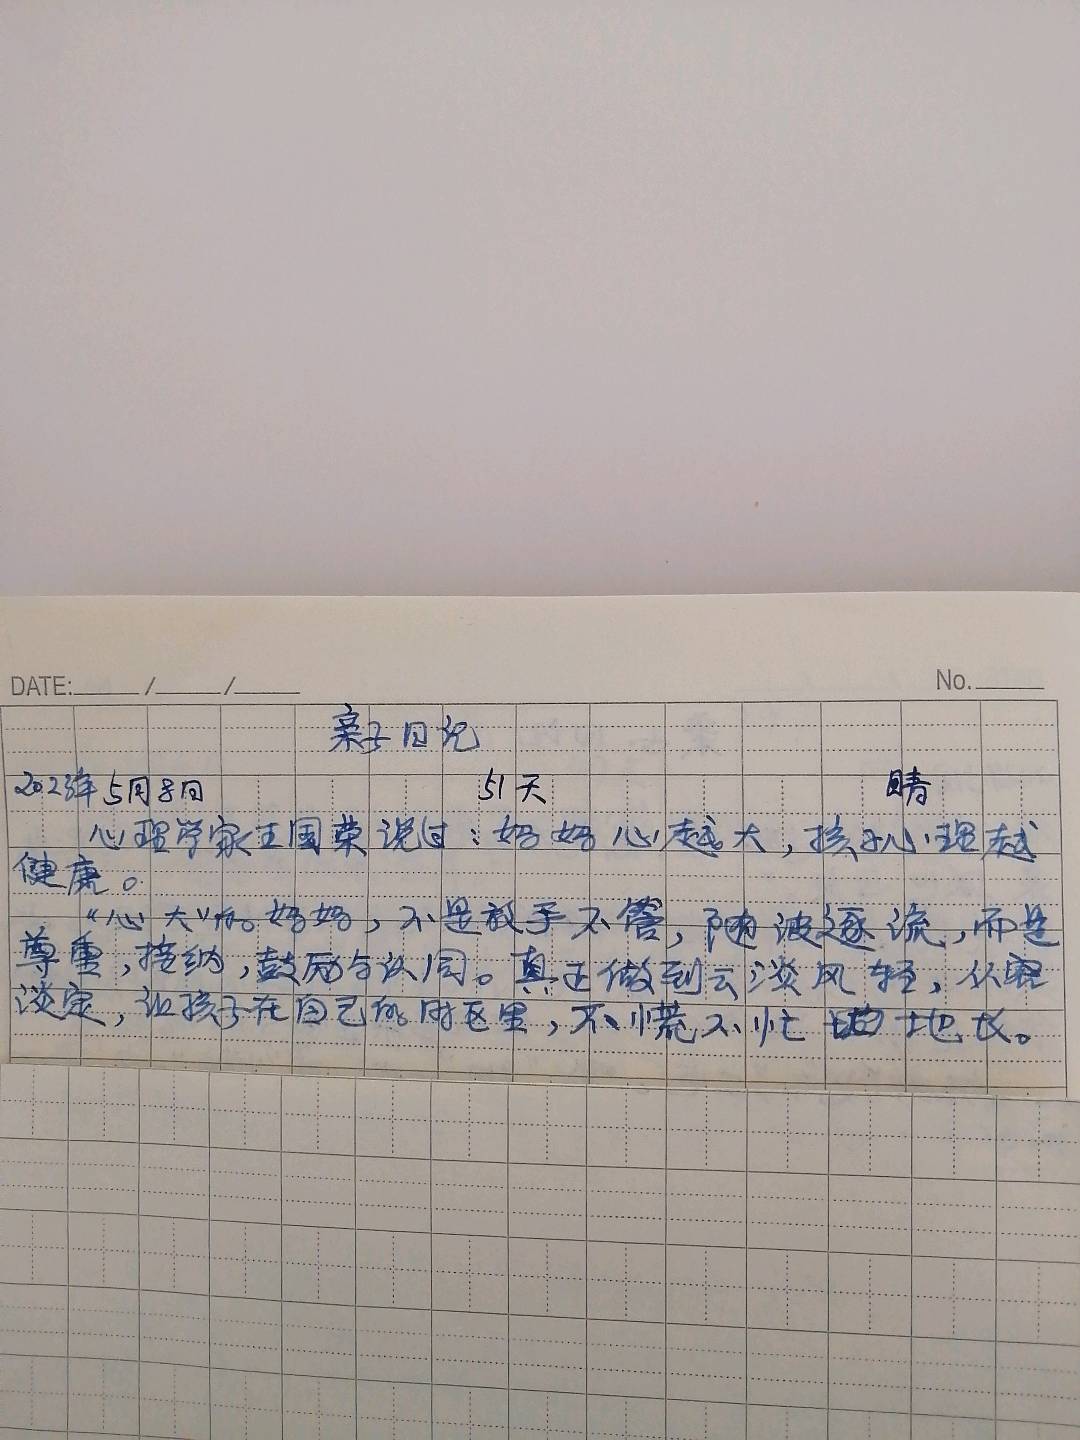 DATE:____/____/____ No.____
亲子日记
2023年5月8日 51天 晴
心理学家王国荣说过：妈妈心越大，孩子心理越
健康。
“心大”的妈妈，不是放手不管，随波逐流，而是
尊重，接纳，鼓励与认同。真正做到云淡风轻，从容
淡定，让孩子在自己的时区里，不慌不忙地成长。